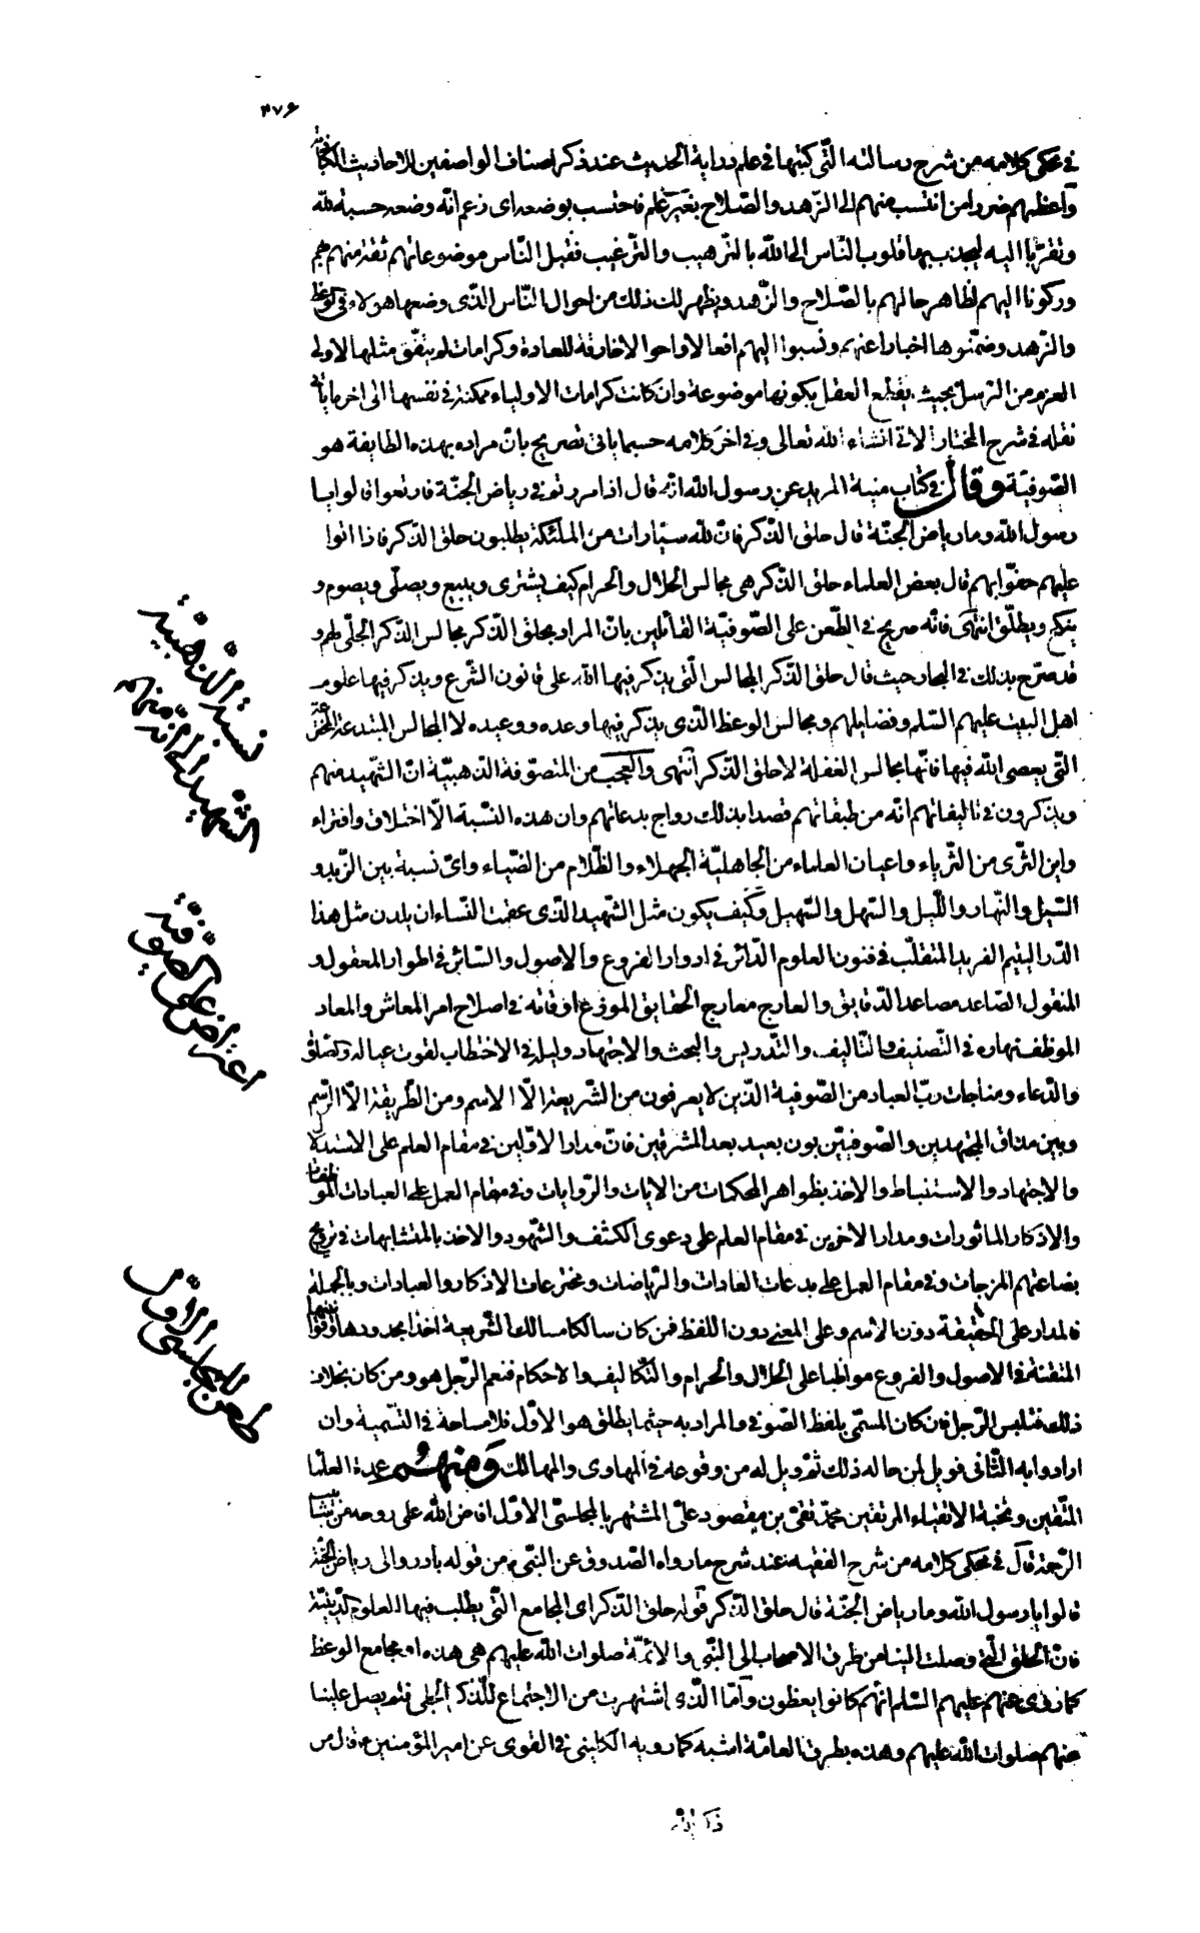 ٣٧۶
في محكي كلامه من شرح رسالته التّي كتبها في علم دراية الحديث عند ذكر اصناف الواضعين للاحاديث الكاذبة
وأعظمهم ضررا من انتسب منهم الى الزّهد والصّلاح بغير علم فاحتسب بوضعه اى زعم انّه وضعه حسبة للّه
وتقرّبا اليه ليجذب بها قلوب النّاس الى اللّه بالترهيب والترغيب فقبل النّاس موضوعاتهم ثقة منهم بهم
وركونا اليهم لظاهر حالهم بالصّلاح والزّهد ويظهر لك ذلك من احوال النّاس الذّى وضعها هولاء فى الوعظ
والزّهد وضمّنوها اخبارا عنهم ونسبوا اليهم افعالا واحوالا خارقة للعادة وكرامات لم يتفّق مثلها لاولى
العزم من الرّسل بحيث يقطع العقل بكونها موضوعة وان كانت كرامات الاولياء ممكنة في نفسها الى اخر ما يأتى
نقله في شرح المختار الاتى انشاء اللّه تعالى وفى اخر كلامه حسبما ياتى تصريح بانّ مراده بهذه الطايفة هو
الصّوفيّة وقال في كتاب منية المريد عن رسول اللّه انّه قال اذا مررتم في رياض الجنّة فارتعوا قالوا يا
رسول اللّه وما رياض الجنّة قال حلق الذّكر فانّ للّه سيّارات من الملئكة يطلبون حلق الذّكر فاذا اتوا
عليهم حفّوا بهم قال بعض العلماء حلق الذّكر هى مجالس الحلال والحرام كيف يشترى ويبيع ويصلّى ويصوم و
ينكح ويطلّق انتهى فانّه صريح في الطّعن على الصّوفيّة القائلين بانّ المراد بحلق الذّكر مجالس الذّكر الجلّى لهم و
قد صرّح بذلك في البحار حيث قال حلق الذّكر المجالس الّتى يذكر فيها اللّه على قانون الشّرع ويذكر فيها علوم
اهل البيت عليهم السّلم وفضايلهم ومجالس الوعظ الذّى يذكر فيها وعده ووعيده لا المجالس المبتدعة المخترعة
التّى يعصى اللّه فيها فانّها مجالس الغفلة لا حلق الذّكر انتهى والعجب من المتصوّفة الذّهبيّة انّ الشّهيد منهم
ويذكرون في تاليفاتهم انّه من طبقاتهم قصدا بذلك رواج بدعاتهم وان هذه النّسبة الّا اختلاق وافتراء
واين الثّرى من الثّرياء واعيان العلماء من الجاهليّة الجهلاء والظّلام من الضّياء واىّ نسبة بين الزّبد و
السّيل والنّهار واللّيل والسّهل والسّهيل وكيف يكون مثل الشّهيد الذّى عقمت النّساء ان يلدن مثل هذا
الدّر اليتيم الفريد المتقلّب في فنون العلوم الدّائر في ادوار الفروع والاصول والسّائر في اطوار المعقول و
المنقول الصّاعد مصاعد الدّقايق والعارج معارج الحقايق الموزع اوقاته في اصلاح امر المعاش والمعاد
الموظف نهاره في التّصنيف والتّاليف والتّدريس والبحث والاجتهاد وليله في الاحتطاب لقوت عياله وكصّلوة
والدّعاء ومناجات ربّ العباد من الصّوفية الذّين لا يعرفون من الشّريعة الّا الاسم ومن الطّريقة الّا الرّسم
وبين مذاق المجتهدين والصّوفيّين بون بعيد بعد المشرقين فانّ مدار الاوّلين في مقام العلم على الاستدلال
والاجتهاد والاستنباط والاخذ بظواهر المحكمات من الايات والرّوايات وفي مقام العمل على العبادات الموظفات
والاذكار الماثورات ومدار الاخرين في مقام العلم على دعوى الكشف والشّهود والاخذ بالمتشابهات في ترويج
بضاعتهم المزجات وفي مقام العمل على بدعات العادات والرّياضات ومخترعات الاذكار والعبادات وبالجملة
فالمدار على الحقيقة دون الاسم وعلى المعنى دون اللفظ فمن كان سالكا مسالك الشّريعة اخذا بحدودها وقوانينها
المتقنة في الاصول والفروع مواظبا على الحلال والحرام والتّكاليف والاحكام فنعم الرّجل هو ومن كان بخلاف
ذلك فبئس الرّجل فان كان المسمّى بلفظ الصّوفي والمراد به حيثما يطلق هو الاوّل فلا مساحة في التّسمية وان
ارادوا به الثّانى فويل لمن حاله ذلك ثمّ ويل له من وقوعه في المهاوى والمهالك ومنهم عمدة العلماء
المتّقين ونخبة الاتقياء المرتقين محمّد تقىّ بن مقصود علىّ المشتهر بالمجلسىّ الاوّل افاض اللّه على روحه من شآبيب
الرّحمة قال في محكى كلامه من شرح الفقيه عند شرح ما رواه الصّدوق عن النّبي ص من قوله بادروا الى رياض الجنّة
قالوا يا رسول اللّه وما رياض الجنّة قال حلق الذّكر قوله حلق الذّكر اى المجامع التّى يطلب فيها العلوم الدّينيّة
فانّ الحلق الّتى وصلت الينا من طرق الاصحاب الى النّبى والائمّة صلوات اللّه عليهم هى هذه او مجامع الوعظ
كما روى عنهم عليهم السّلم انّهم كانوا يعظون وأمّا الذّى اشتهرت من الاجتماع للذّكر الجلى فلم يصل علينا
عنهم صلوات اللّه عليهم وهذه بطرق العامّة اشبه كما رويه الكلينى في القوى عن امير المؤمنين ع قال من
ذكر اللّه
نسبة الذّهبيّة
الشّهيد الى انّه منهم
اعتراض على الصوفيّة
طعن المجلسى الاوّل